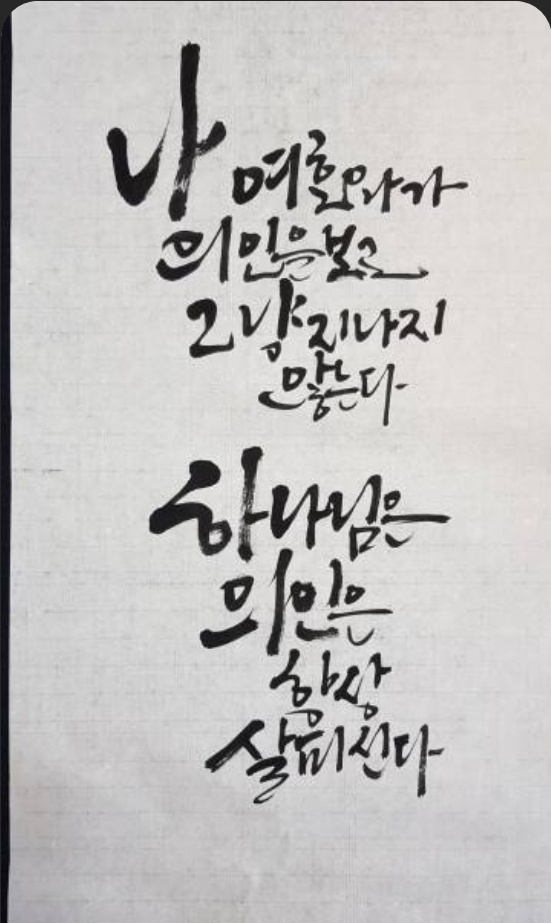 나 여호와가
의인을 보고
그냥 지나지
않는다
하나님은
의인은
항상
살피신다